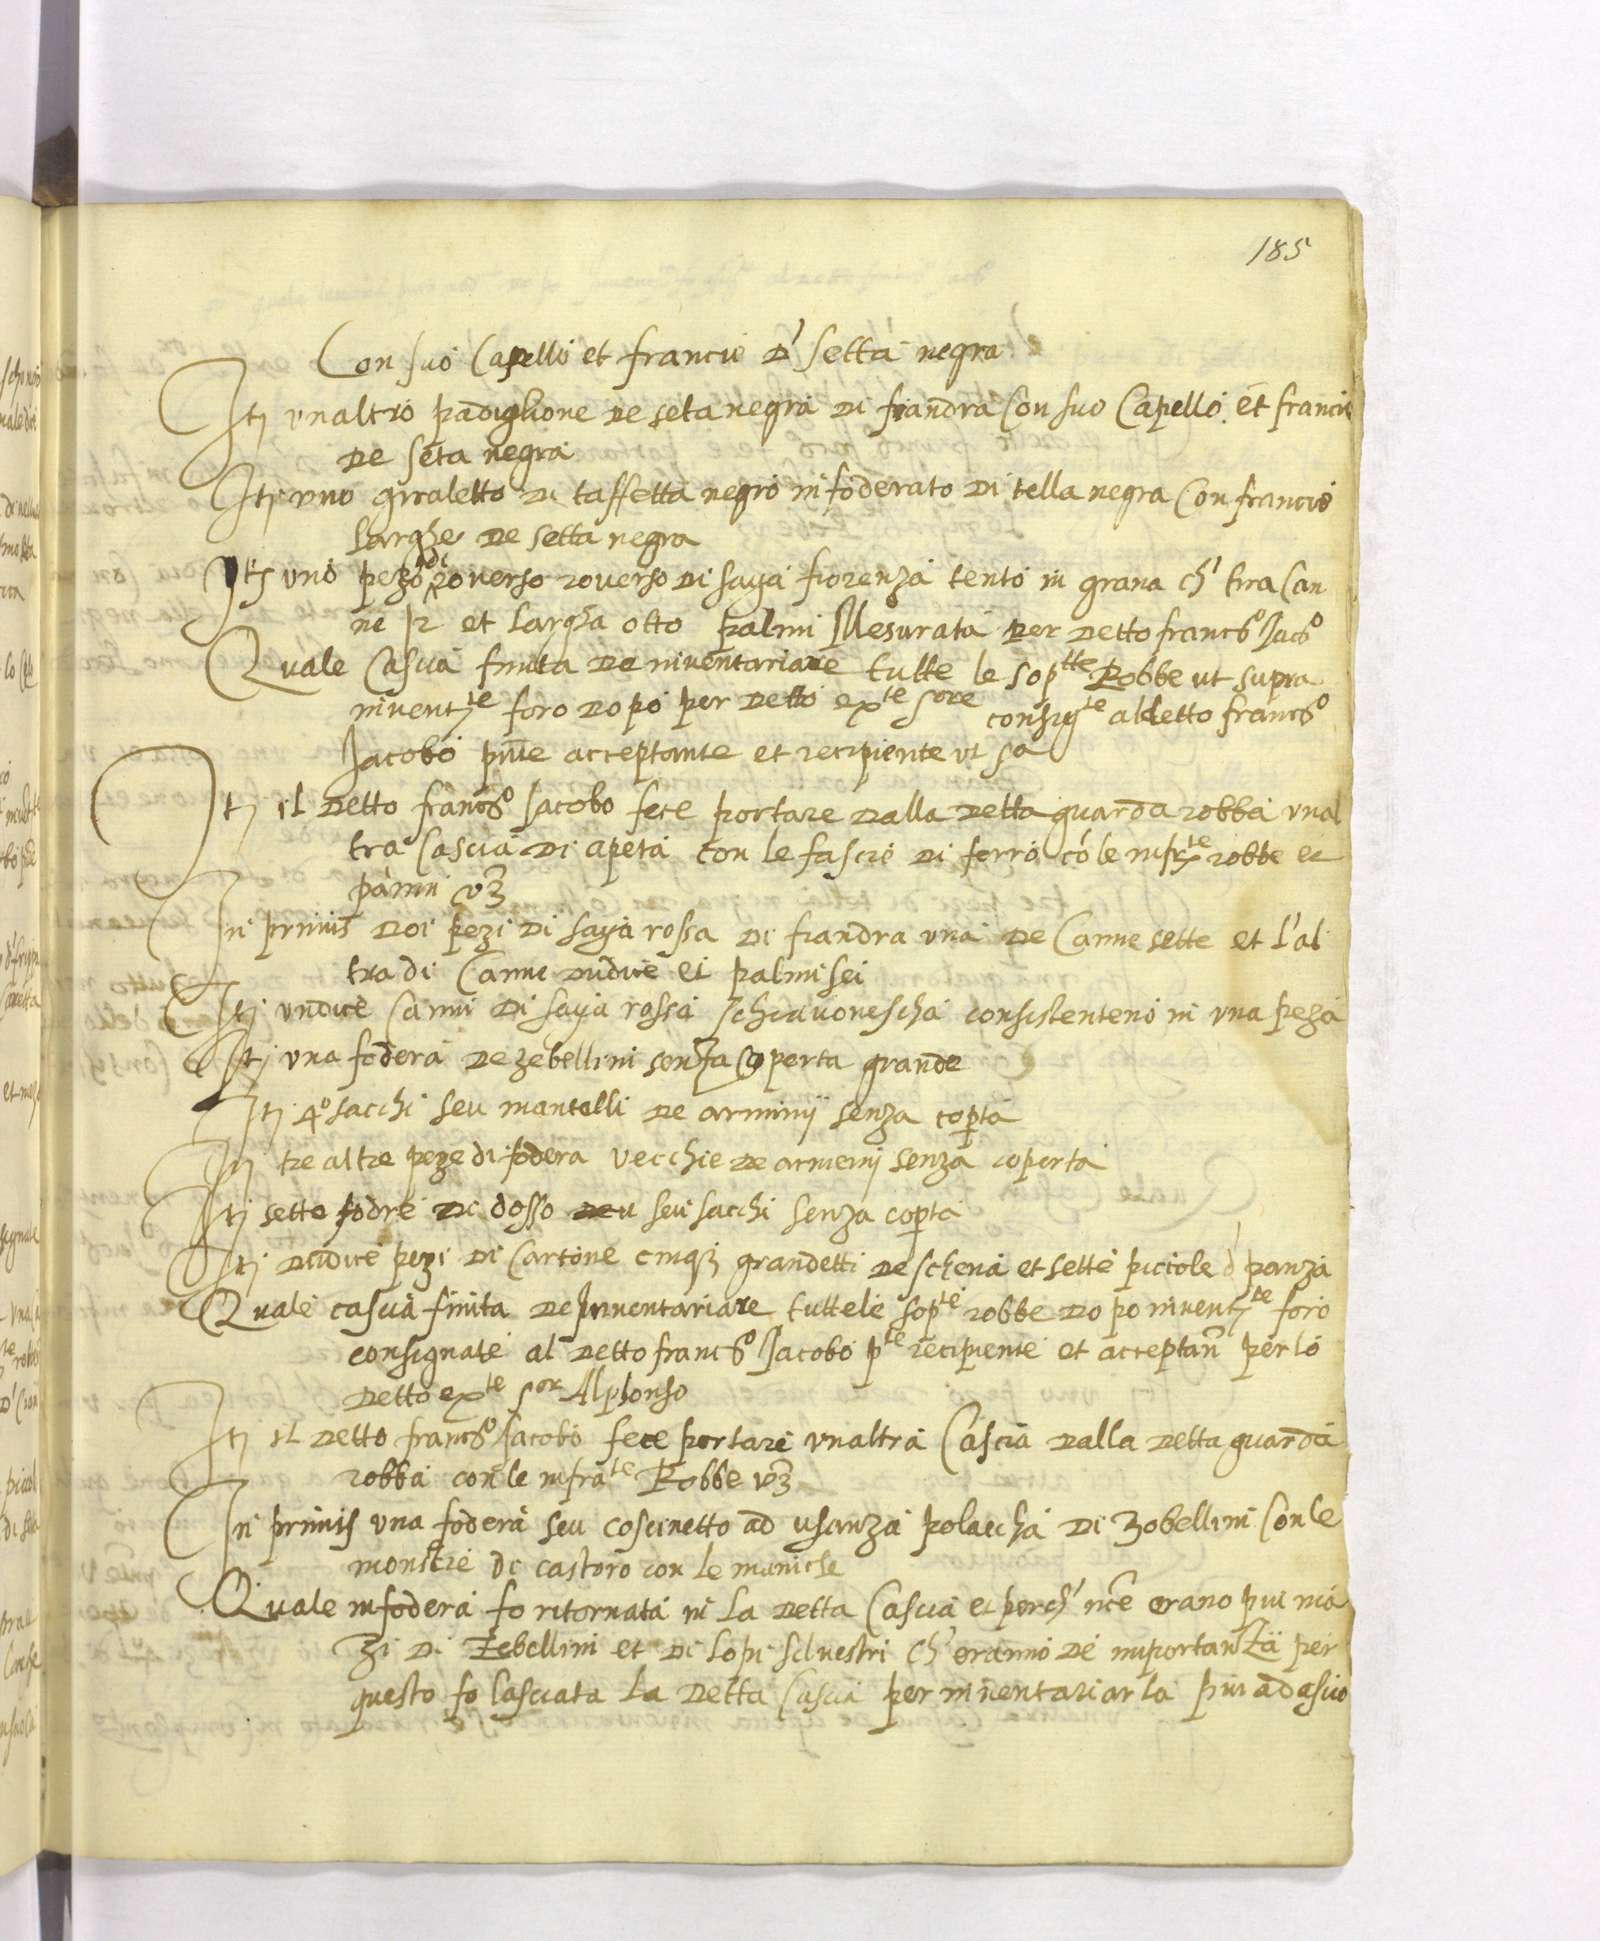 185
Con suo Capello et francie d' setta negra
Itj unaltro padiglione de seta negra di fiandra Con suo Capello et francie
de seta negra
Itj uno giraletto di taffetta negro infoderato di tella negra Con francie
larghe de setta negra
Itj uno pezo di roverso roverso di saya fiorenza tento in grana ch' tira Can
ne 12 et largha otto palmi Mesurata per detto franco Jaco
Quale Cascia finita de inventariare tutte le soptte Robbe ut supra
inventte foro dopo per detto exte sore consigte al detto francco
Jacobo pnte acceptante et recipiente ut sa
Itj il detto francco Jacobo fece portare dalla detta guarda robba unal
tra Cascia di apeta con le fascie di ferro co le infrte robbe et
panni vz
In primis doi pezi di saya rossa di fiandra una de Canne sette et l'al
tra di Canne dudice et palmi sei
Itj undice Canni di saya rossa schiavonescha consistenteno in una peza
Itj una fodera de zebellini senza Coperta grande
Itj 4o sacchi seu mantelli de arminij senza copta
Itj tre altre peze di fodera vecchie de armenij senza coperta
Itj sette fodre di dosso seu sacchi senza copta
Itj dudice pezi di Cartone cinq grandetti de schena et sette piccole d' panza
Quale cascia finita de Inventariare tuttele sopte robbe dopo inventte foro
consignate al detto francco Jacobo pte recipiente et acceptan per lo
detto exte sor Alphonso
Itj il detto francco Jacobo fece portare unaltra Cascia dalla detta guarda
robba con le infrate Robbe vz
In primis una fodera seu coscinetto ad usanza polaccha di Zobellini Con le
monstre de castoro con le maniche
Quale infodera fo ritornata in la detta Cascia et perch' nce erano piu ma
zi di Zebellini et di lopi silvestri ch' eranno de importanza per
questo fo lasciata la detta Cascia per inventariarla piu ad asuo